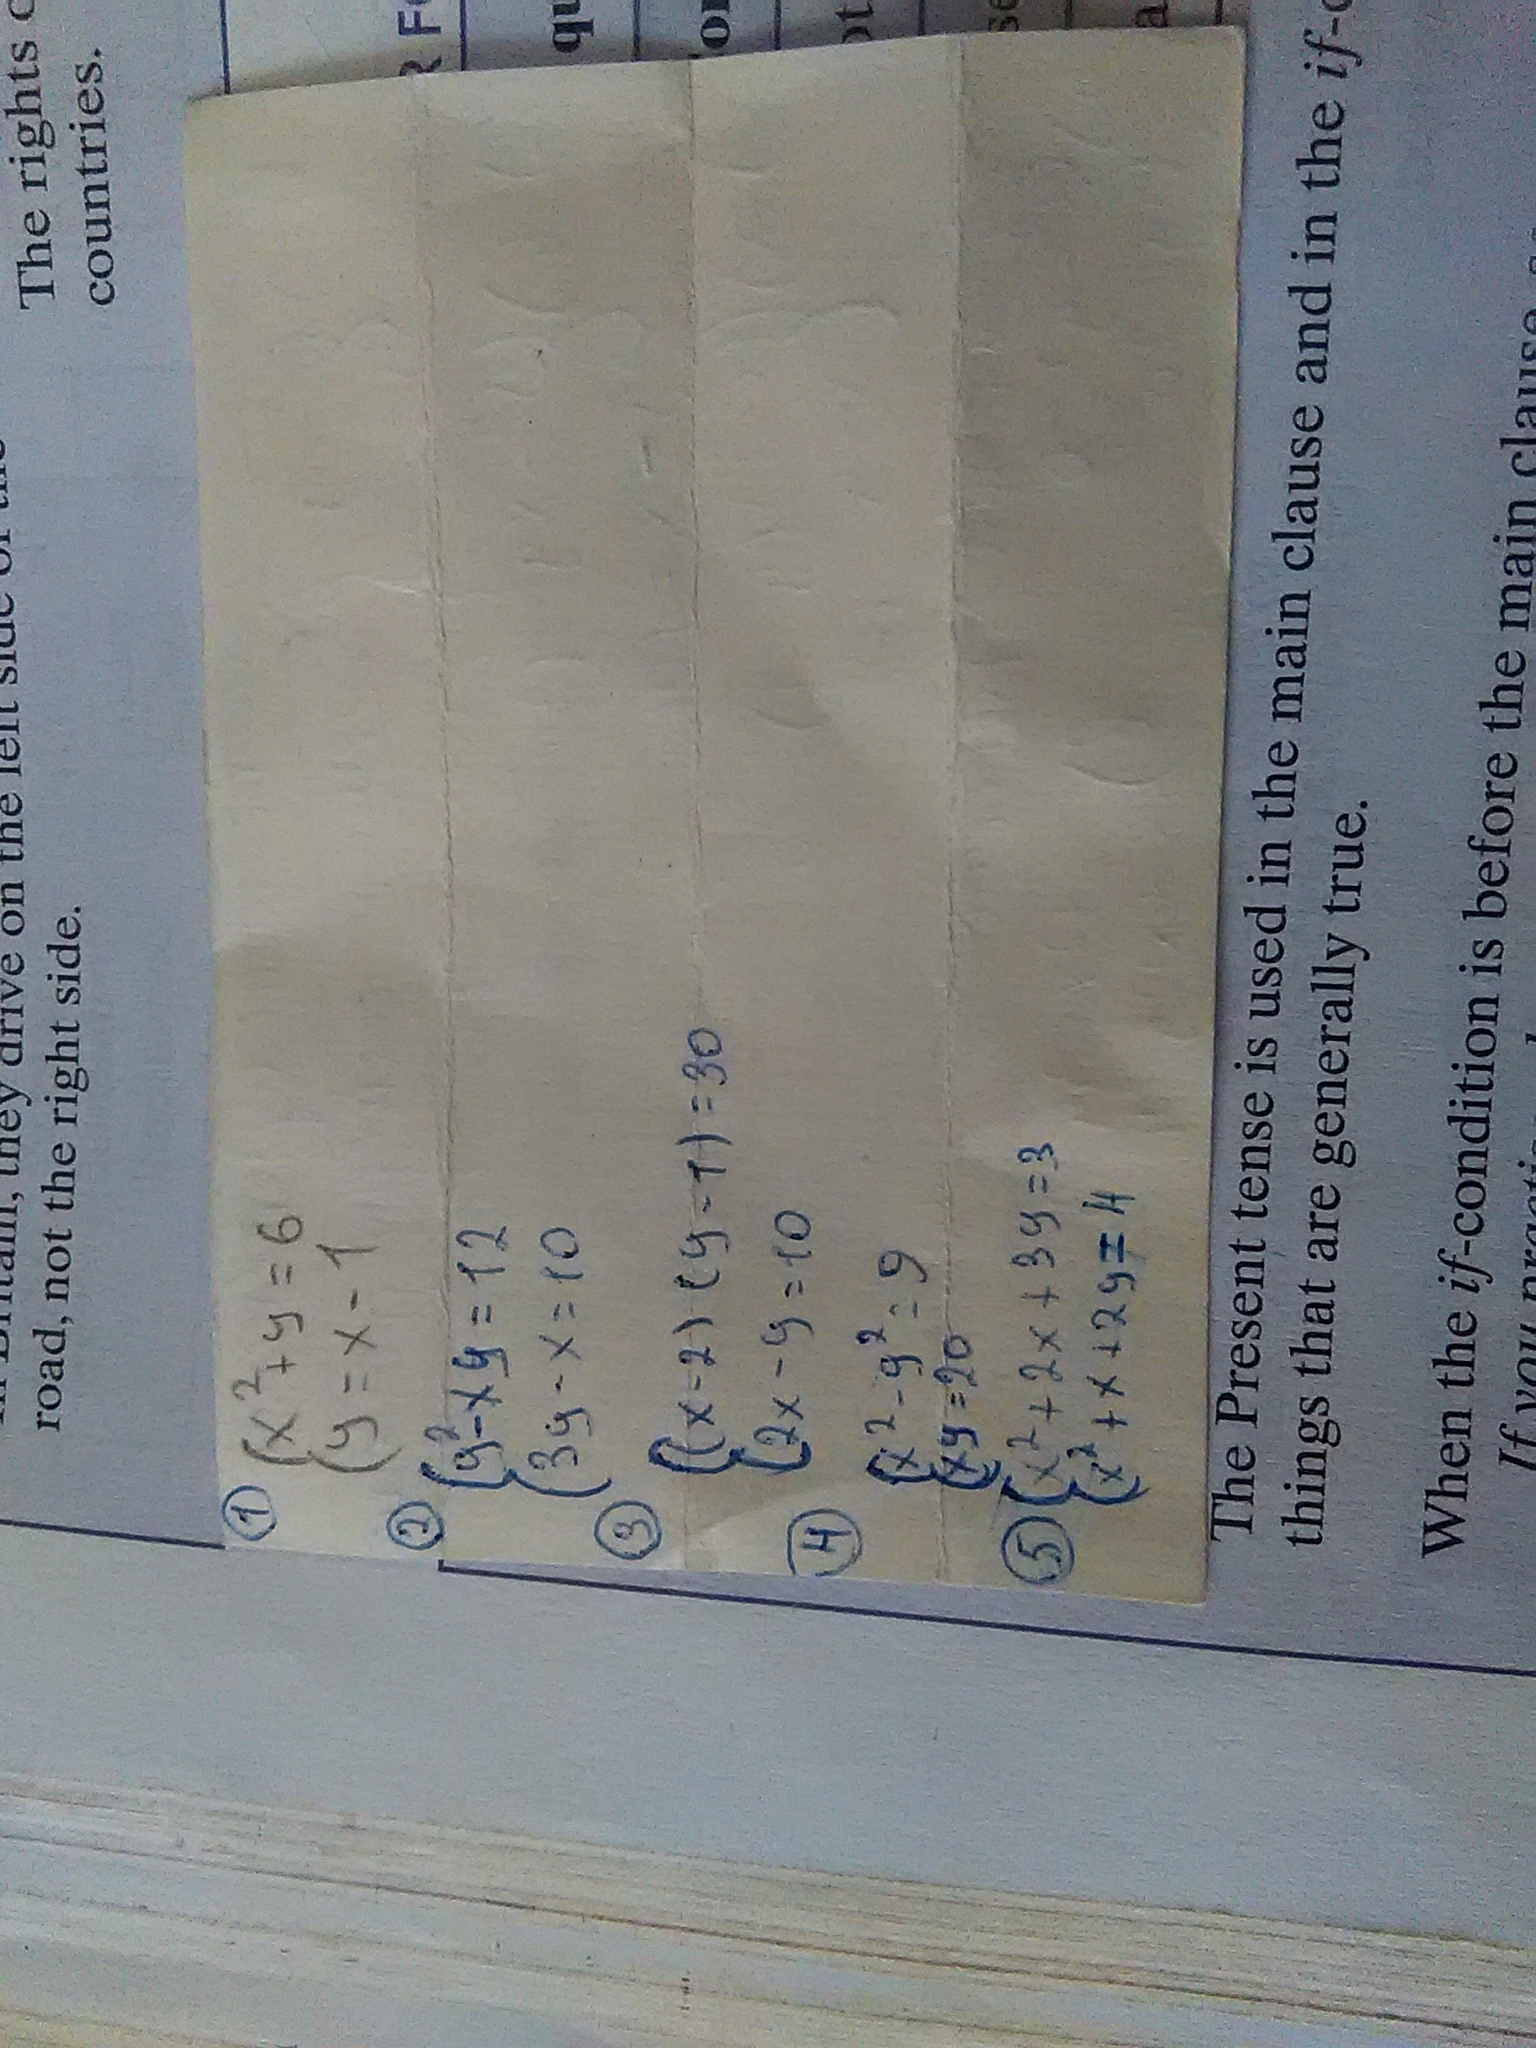 The rights
countries.
road, not the right side.
① x²+y=6
y=x-1
② y²-xy=12
3y-x=10
③ (x-2)(y-1)=30
2x-y=10
④ x²-y²=9
xy=20
⑤ x²+2x+3y=3
x²+x+2y=4
The Present tense is used in the main clause and in the if-
things that are generally true.
When the if-condition is before the main clause
If you